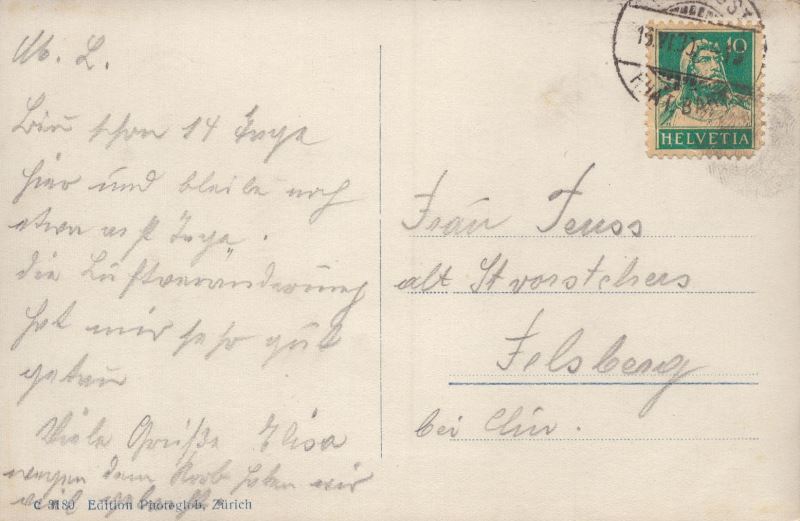 M. L.
Bin schon 14 Tage
hier und bleibe noch
etwa 8 Tage.
die Luftveränderung
hat mir sehr gut
getan
Viele Grüße Elisa
wegen dem Korb haben wir
viel
C 3180 Edition Photoglob, Zürich
10
HELVETIA
Frau Teuss
alt Stvorstehers
Felsberg
bei Chur.